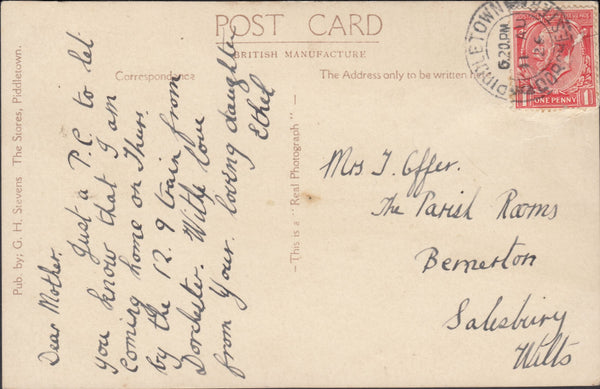 POST CARD
BRITISH MANUFACTURE
Correspondence
The Address only to be written
Pub. by; G. H. Stevens The Stores, Piddletown.
—This is a "Real Photograph"—
Dear Mother.
Just a P.C. to let
you know that I am
coming home on Thurs.
by the 12.9 train from
Dorchester. With love
from your loving daughter
Ethel
Mrs J. Offer.
The Parish Rooms
Bemerton
Salesbury
Wilts
PIDDLETOWN
6.20 PM
ONE PENNY